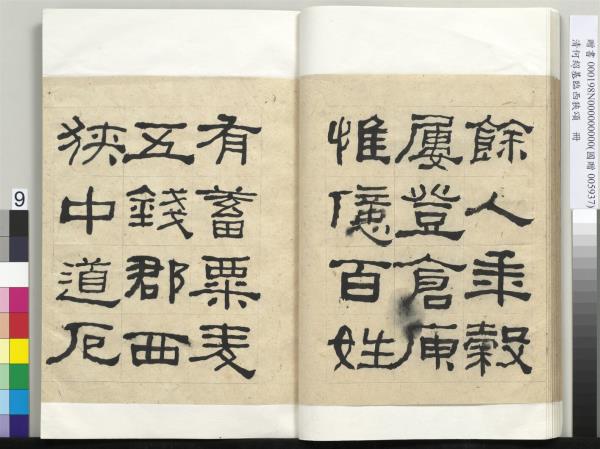 餘人年穀
屢登倉庾
惟億百姓
有蓄粟麦
五錢郡西
狹中道厄
贈書 000198N000000000(國贈 005937)
清何紹基臨西狹頌 冊
9